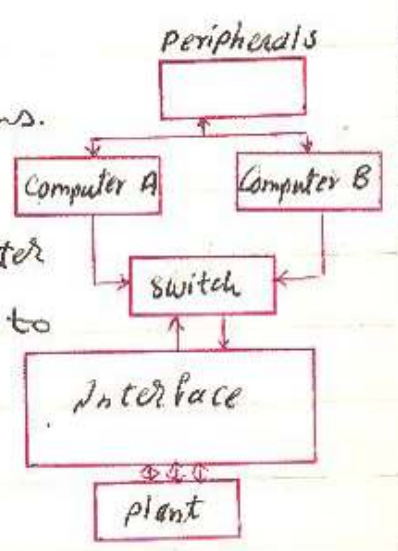 Peripherals
ns.
Computer A Computer B
ter
switch
to
Interface
plant